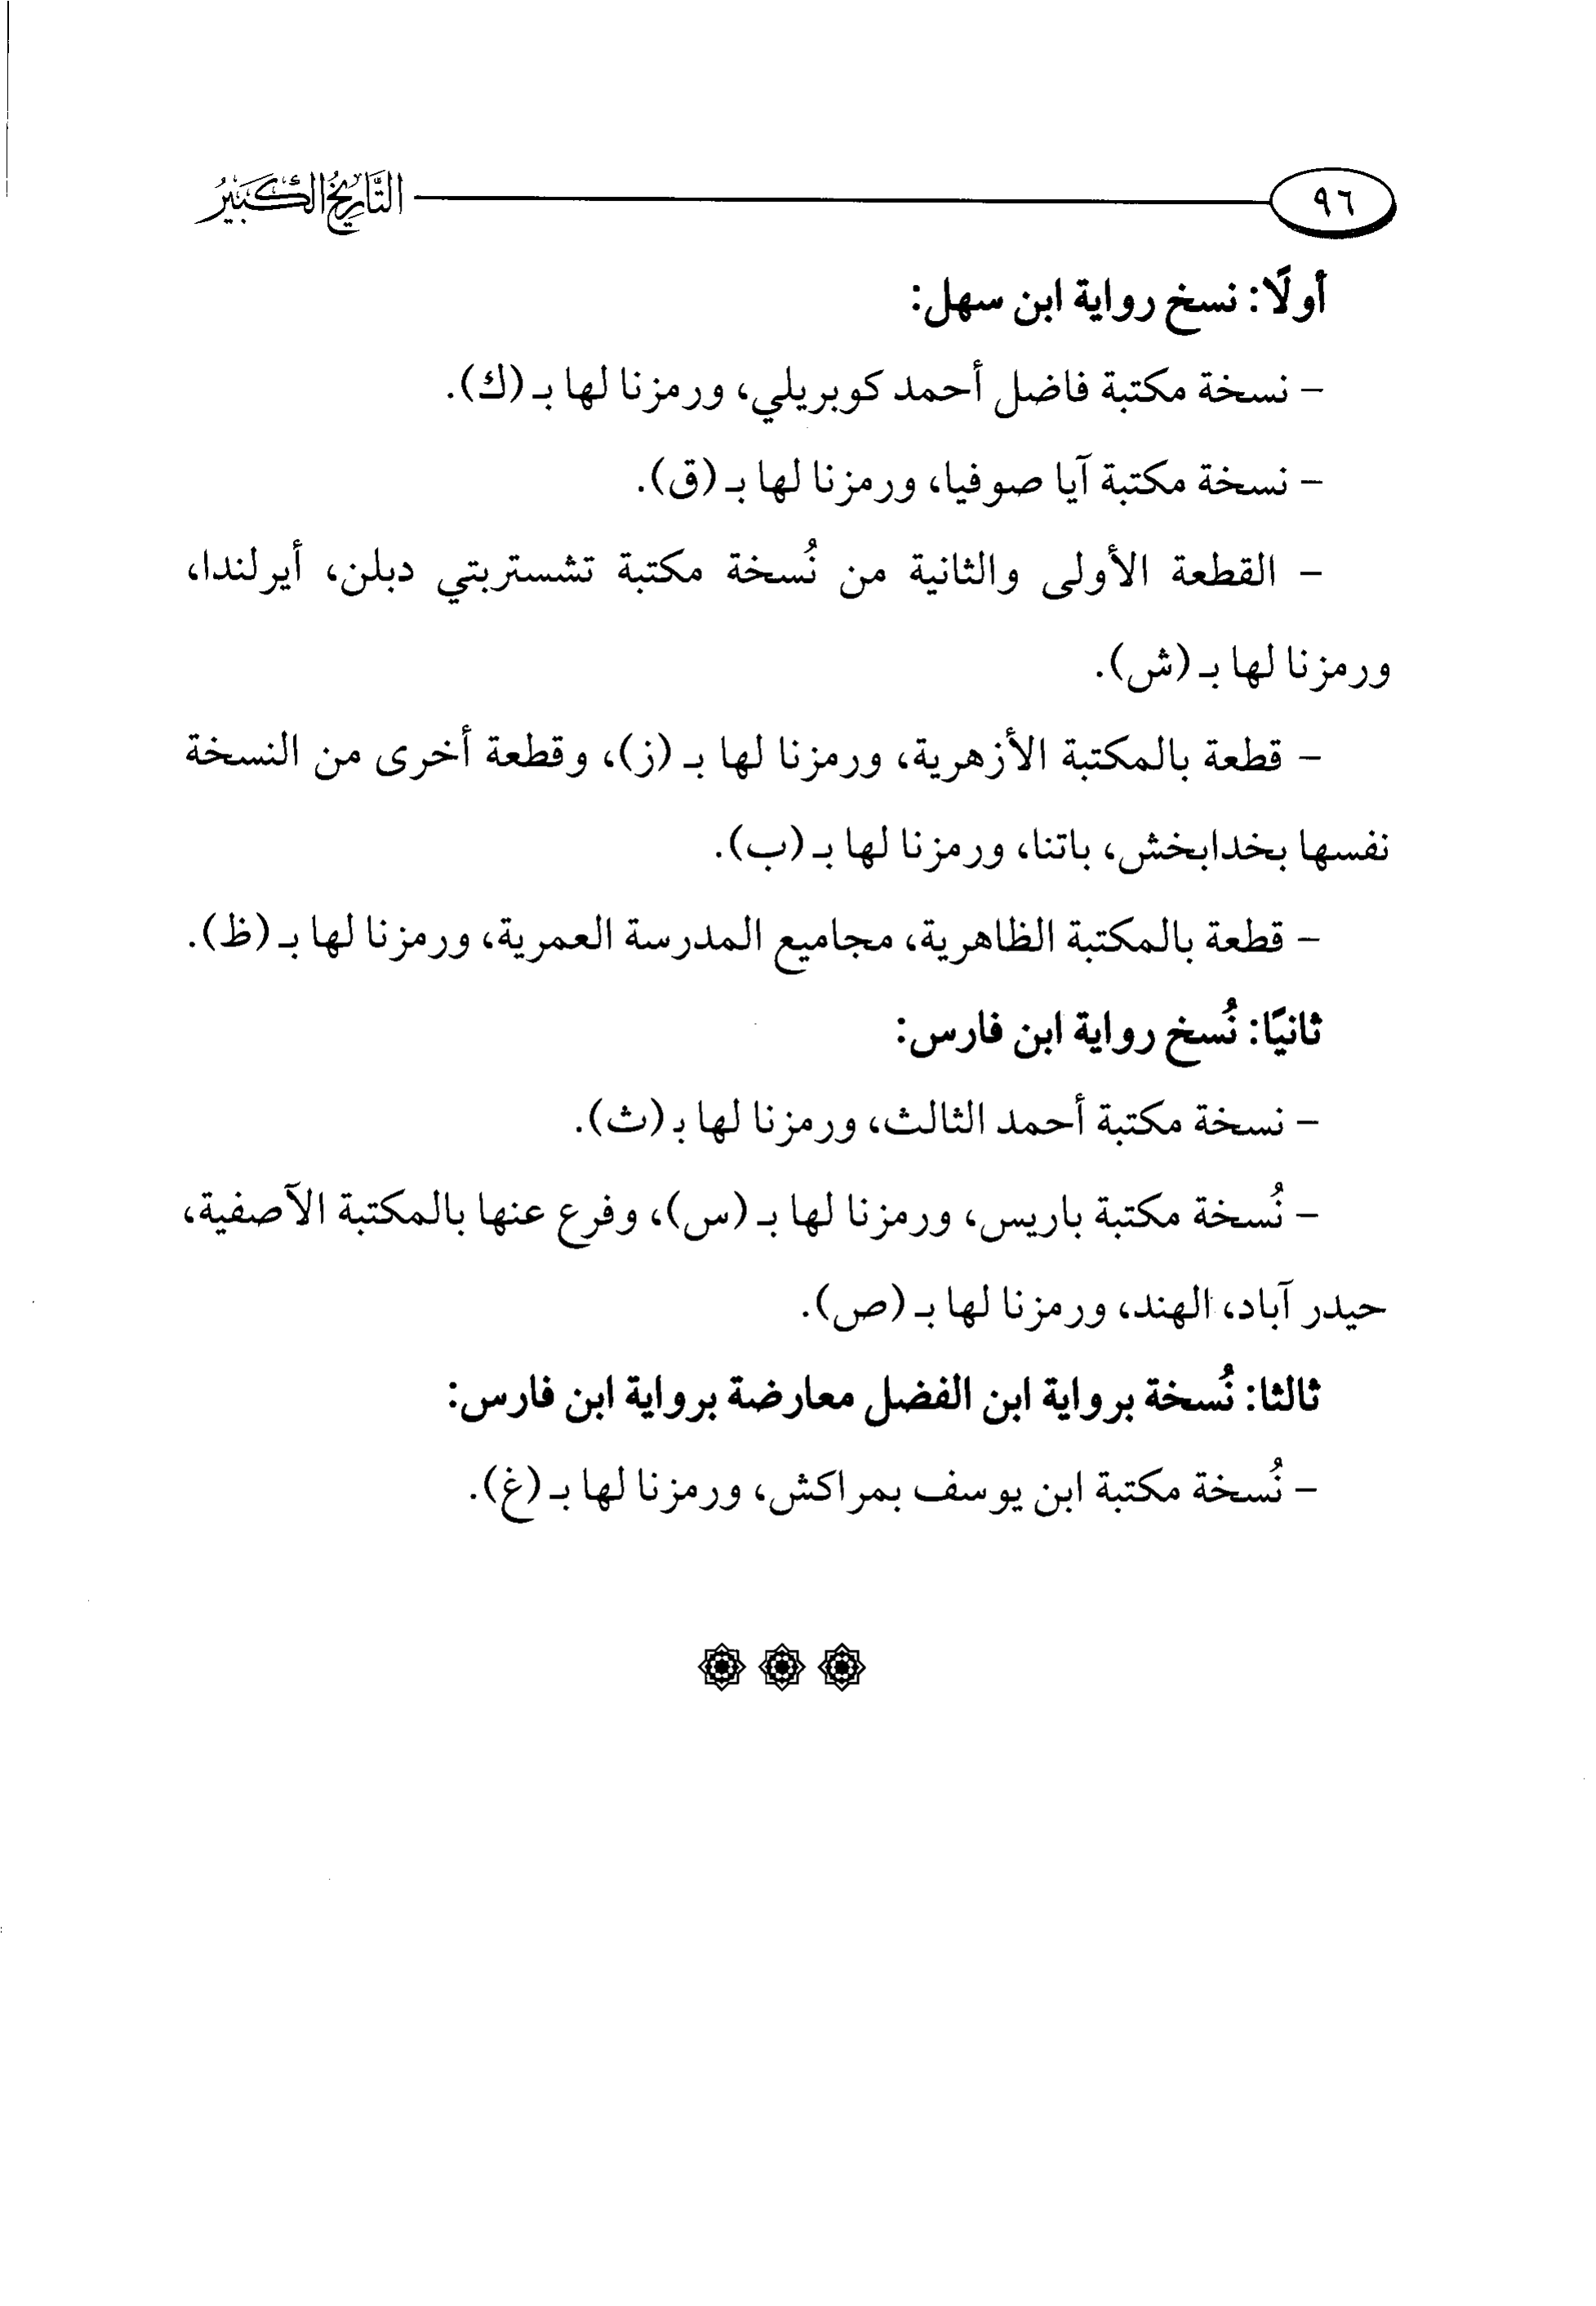 ٩٦
التَّارِيخُ الكَبِيرُ
أولًا: نسخ رواية ابن سهل:
- نسخة مكتبة فاضل أحمد كوبريلي، ورمزنا لها بـ (ك).
- نسخة مكتبة آيا صوفيا، ورمزنا لها بـ (ق).
- القطعة الأولى والثانية من نُسخة مكتبة تشستربتي دبلن، أيرلندا،
ورمزنا لها بـ (ش).
- قطعة بالمكتبة الأزهرية، ورمزنا لها بـ (ز)، وقطعة أخرى من النسخة
نفسها بخدابخش، باتنا، ورمزنا لها بـ (ب).
- قطعة بالمكتبة الظاهرية، مجاميع المدرسة العمرية، ورمزنا لها بـ (ظ).
ثانيًا: نُسخ رواية ابن فارس:
- نسخة مكتبة أحمد الثالث، ورمزنا لها بـ (ث).
- نُسخة مكتبة باريس، ورمزنا لها بـ (س)، وفرع عنها بالمكتبة الآصفية،
حيدر آباد، الهند، ورمزنا لها بـ (ص).
ثالثا: نُسخة برواية ابن الفضل معارضة برواية ابن فارس:
- نُسخة مكتبة ابن يوسف بمراكش، ورمزنا لها بـ (غ).